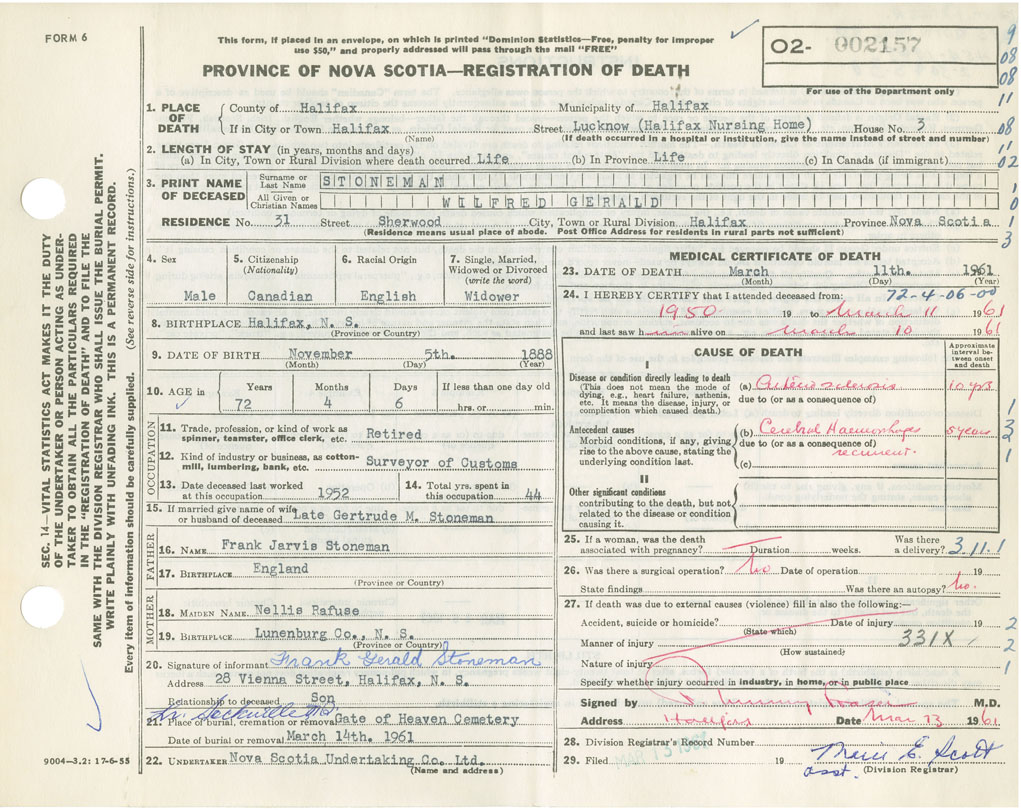 FORM 6
This form, if placed in an envelope, on which is printed "Dominion Statistics—Free, penalty for improper
use $50," and properly addressed will pass through the mail "FREE"
PROVINCE OF NOVA SCOTIA—REGISTRATION OF DEATH
O2- 002157
For use of the Department only
9
08
08
11
08
11
02
1
0
1
3
SEC. 14—VITAL STATISTICS ACT MAKES IT THE DUTY
OF THE UNDERTAKER OR PERSON ACTING AS UNDER-
TAKER TO OBTAIN ALL THE PARTICULARS REQUIRED
IN THE "REGISTRATION OF DEATH" AND TO FILE THE
SAME WITH THE DIVISION REGISTRAR WHO SHALL ISSUE THE BURIAL PERMIT.
WRITE PLAINLY WITH UNFADING INK. THIS IS A PERMANENT RECORD.
Every item of information should be carefully supplied. (See reverse side for instructions.)
1. PLACE OF DEATH
County of Halifax Municipality of Halifax
If in City or Town Halifax Street Lucknow (Halifax Nursing Home) House No. 3
(Name) (If death occurred in a hospital or institution, give the name instead of street and number)
2. LENGTH OF STAY (in years, months and days)
(a) In City, Town or Rural Division where death occurred Life (b) In Province Life (c) In Canada (if immigrant)
3. PRINT NAME OF DECEASED
Surname or Last Name STONEMAN
All Given or Christian Names WILFRED GERALD
RESIDENCE No. 31 Street Sherwood City, Town or Rural Division Halifax Province Nova Scotia
(Residence means usual place of abode. Post Office Address for residents in rural parts not sufficient)
4. Sex
Male
5. Citizenship
(Nationality)
Canadian
6. Racial Origin
English
7. Single, Married,
Widowed or Divorced
(write the word)
Widower
8. BIRTHPLACE Halifax, N. S.
(Province or Country)
9. DATE OF BIRTH November 5th. 1888
(Month) (Day) (Year)
10. AGE in
Years Months Days If less than one day old
72 4 6 hrs. or min.
OCCUPATION
11. Trade, profession, or kind of work as
spinner, teamster, office clerk, etc. Retired
12. Kind of industry or business, as cotton-
mill, lumbering, bank, etc. Surveyor of Customs
13. Date deceased last worked
at this occupation 1952
14. Total yrs. spent in
this occupation 44
15. If married give name of wife
or husband of deceased Late Gertrude M. Stoneman
FATHER
16. NAME Frank Jarvis Stoneman
17. BIRTHPLACE England
(Province or Country)
MOTHER
18. MAIDEN NAME Nellis Rafuse
19. BIRTHPLACE Lunenburg Co., N. S.
(Province or Country)
20. Signature of informant Frank Gerald Stoneman
Address 28 Vienna Street, Halifax, N. S.
Relationship to deceased Son
Lr. Sackville N.S.
21. Place of burial, cremation or removal Gate of Heaven Cemetery
Date of burial or removal March 14th. 1961
22. UNDERTAKER Nova Scotia Undertaking Co. Ltd.
(Name and address)
9004-3,2: 17-6-55
MEDICAL CERTIFICATE OF DEATH
23. DATE OF DEATH March 11th. 1961
(Month) (Day) (Year)
72-4-06-00
24. I HEREBY CERTIFY that I attended deceased from:
1950 19 to March 11 1961
and last saw him alive on March 10 1961
CAUSE OF DEATH
Approximate
interval be-
tween onset
and death
I
Disease or condition directly leading to death
(This does not mean the mode of
dying, e.g., heart failure, asthenia,
etc. It means the disease, injury, or
complication which caused death.)
(a) Arteriosclerosis 10 yrs
due to (or as a consequence of)
Antecedent causes
Morbid conditions, if any, giving
rise to the above cause, stating the
underlying condition last.
(b) Cerebral Haemorrhages 5 years
due to (or as a consequence of)
recurrent.
(c)
II
Other significant conditions
contributing to the death, but not
related to the disease or condition
causing it.
1
3
2
1
25. If a woman, was the death
associated with pregnancy? Duration weeks. Was there
a delivery? 3.11.1
26. Was there a surgical operation? No Date of operation 19
State findings Was there an autopsy? No.
27. If death was due to external causes (violence) fill in also the following:—
Accident, suicide or homicide? Date of injury 19
(State which)
Manner of injury 331X
(How sustained)
Nature of injury
Specify whether injury occurred in industry, in home, or in public place
2
2
1
Signed by Fraser M.D.
Address Halifax Date Mar 13 1961
28. Division Registrar's Record Number
29. Filed 19 E. Scott
asst. (Division Registrar)